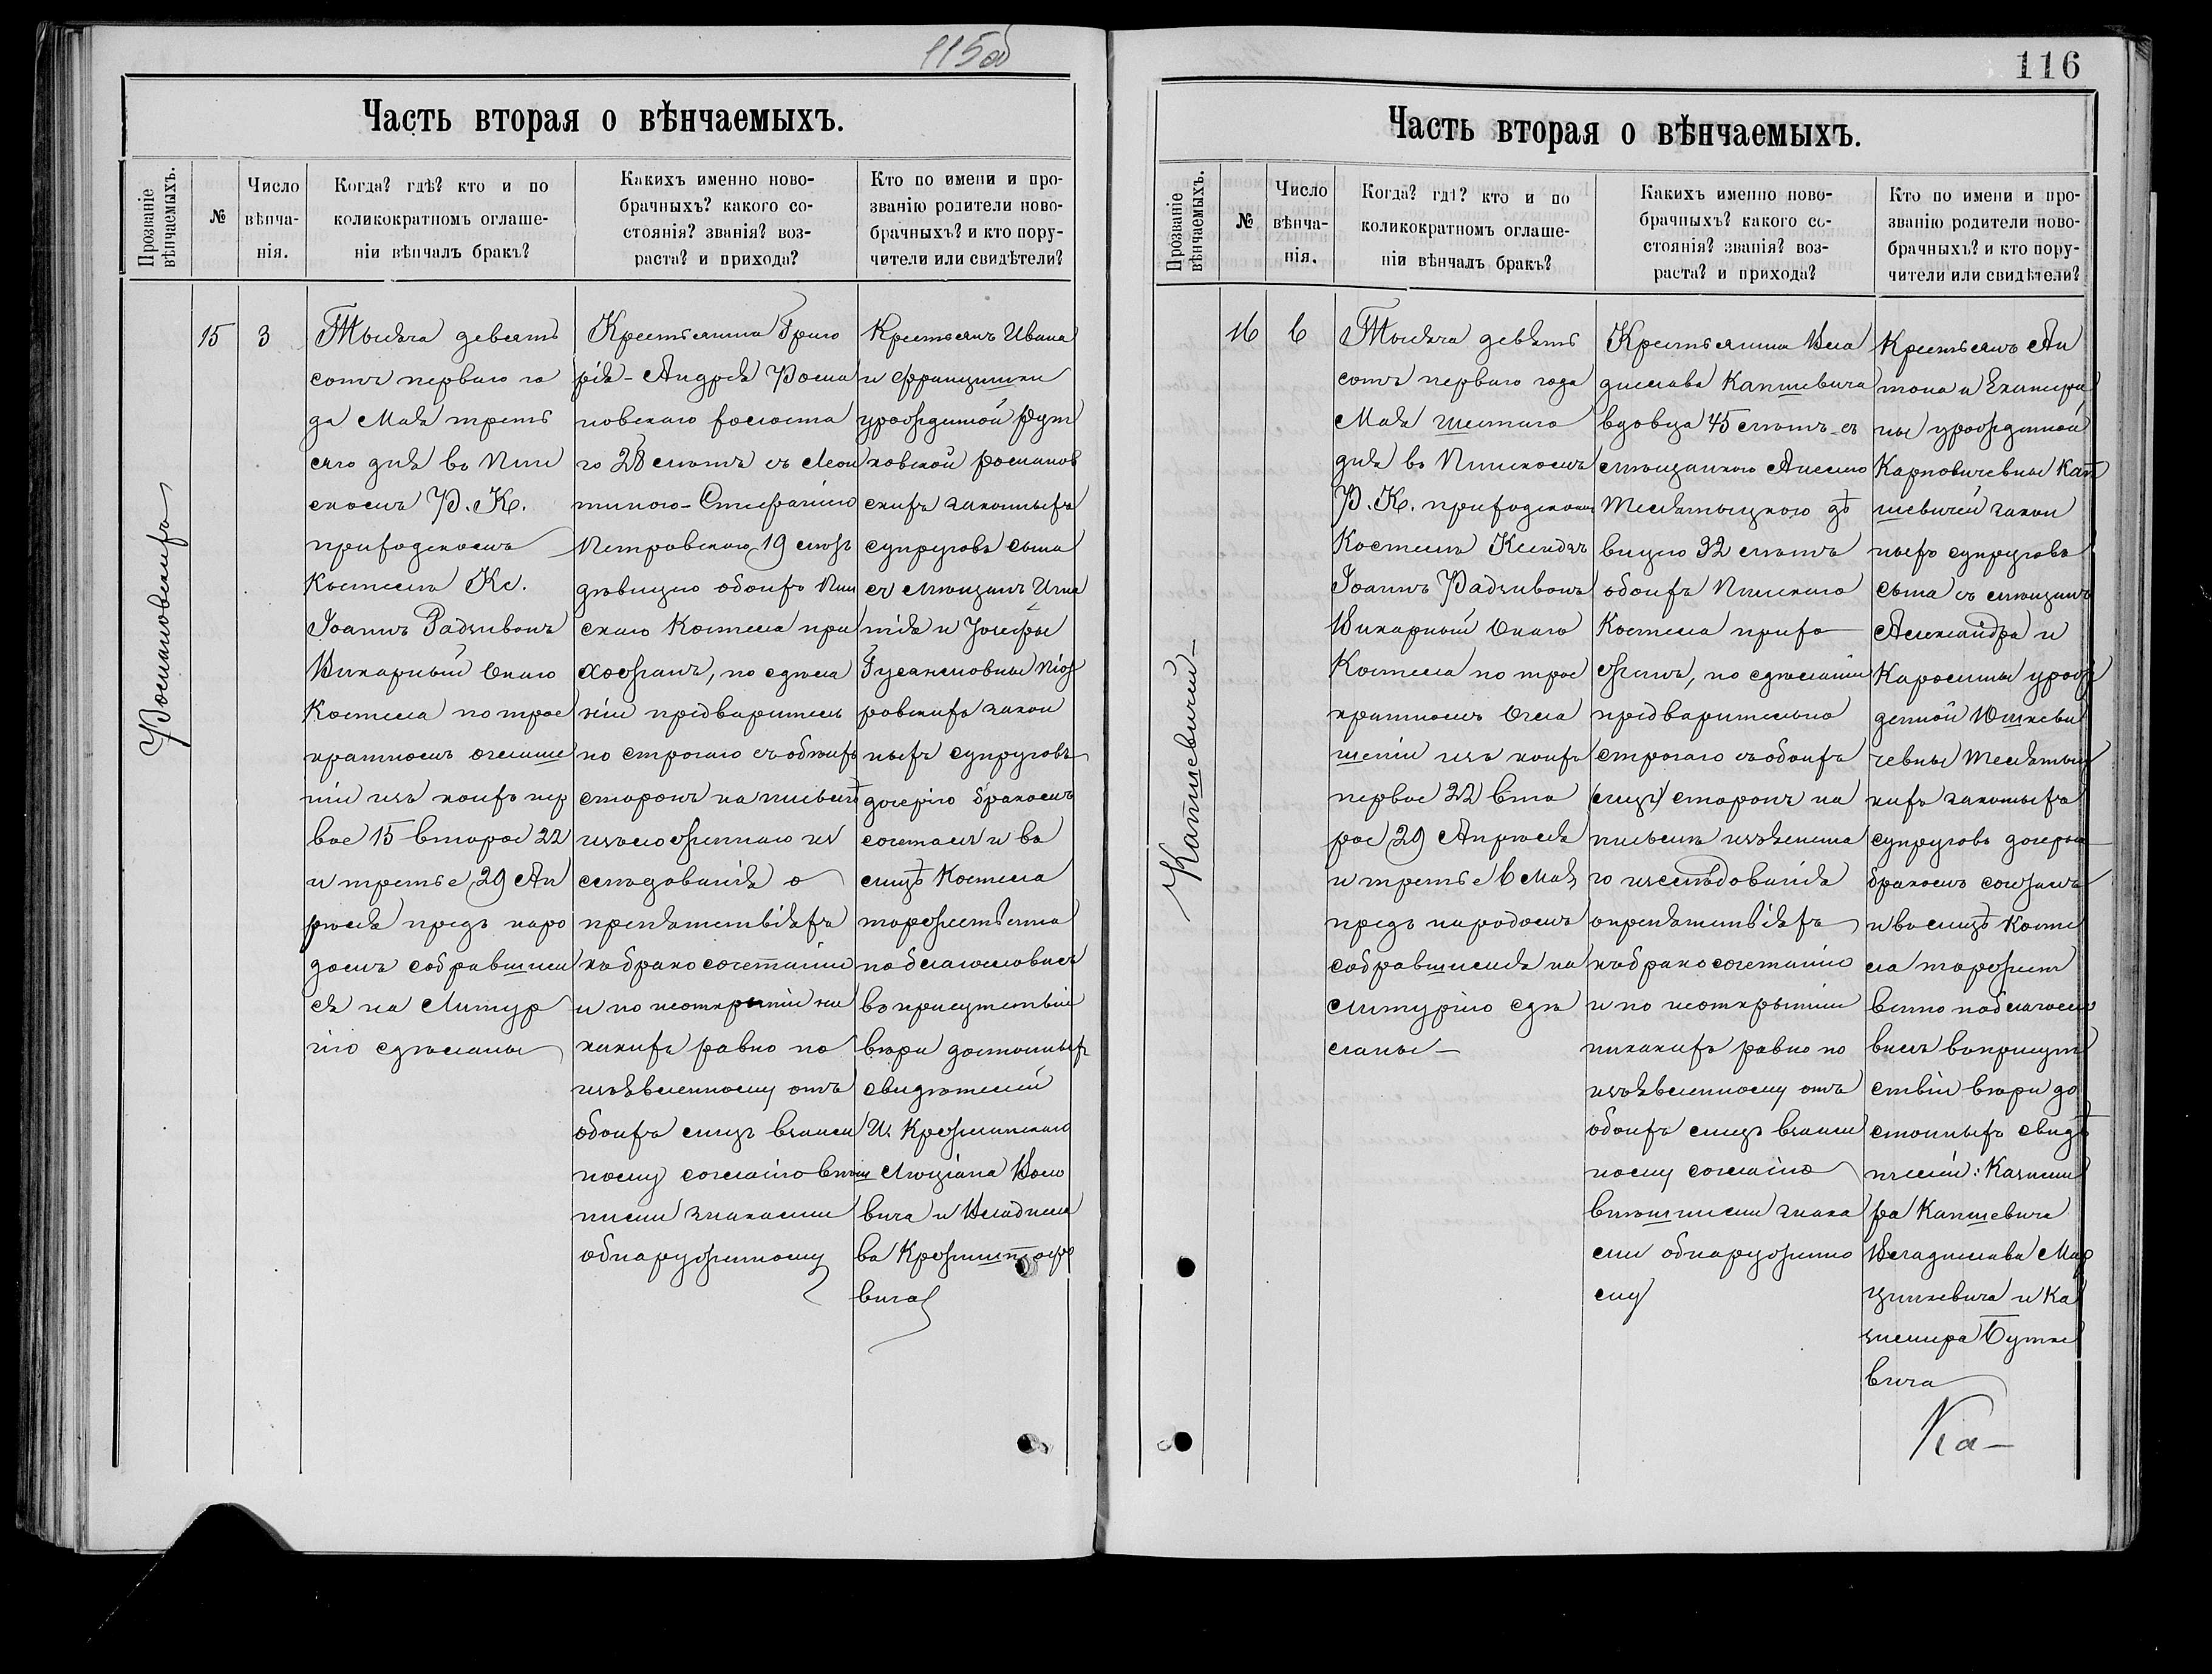 115об
Часть вторая о вѣнчаемыхъ.
Прозваніе вѣнчаемыхъ.
№
Число вѣнча-
нія.
Когда? гдѣ? кто и по
коликократномъ оглаше-
ніи вѣнчалъ бракъ?
Какихъ именно ново-
брачныхъ? какого со-
стоянія? званія? воз-
раста? и прихода?
Кто по имени и про-
званію родители ново-
брачныхъ? и кто пору-
чители или свидѣтели?
15
3
Тысяча девять
сотъ перваго го
да Мая треть
яго дня въ Пин
скомъ Р. К.
приходскомъ
Костелѣ Кс.
Іоаннъ Радзивонъ
Викарный онаго
Костела по трое
кратномъ оглаше
ніи изъ коихъ пер
вое 15 второе 22
и третье 29 Ап
рѣля предъ наро
домъ собравшим
ся на Литур
гію сдѣланы
Крестьянина Григо
рія-Андрея Рома
новскаго холоста
го 28 лѣтъ съ Леон
тиною-Стефаніею
Петровскою 19 лѣтъ
дѣвицею обоихъ Пин
скаго Костела при
хожанъ, по сдѣла
ніи предваритель
но строгаго съ обѣихъ
сторонъ на письмѣ
изложеннаго из
слѣдованія о
препятствіяхъ
къ бракосочетанію
и по неоткрытіи ни
какихъ равно по
изъявленному отъ
обоихъ лицъ взаим
ному согласію внѣш
ними знаками
обнаруженному
Крестьянъ Ивана
и Францишки
урожденной Рут
ковской Романов
скихъ законныхъ
супруговъ сына
съ мѣщанъ Игна
тія и Іозефы
Законныхъ супруговъ
дочерію бракомъ
сочеталъ и въ
лицѣ Костела
торжественно
поблагословилъ
въ присутствіи
вѣры достойныхъ
свидѣтелей
Люціана Воло
вича и Владисла
ва
вича
Романовскихъ
116
Часть вторая о вѣнчаемыхъ.
Прозваніе вѣнчаемыхъ.
№
Число вѣнча-
нія.
Когда? гдѣ? кто и по
коликократномъ оглаше-
ніи вѣнчалъ бракъ?
Какихъ именно ново-
брачныхъ? какого со-
стоянія? званія? воз-
раста? и прихода?
Кто по имени и про-
званію родители ново-
брачныхъ? и кто пору-
чители или свидѣтели?
16
6
Тысяча девять
сотъ перваго года
Мая шестаго
дня въ Пинскомъ
Р. К. приходскомъ
Костелѣ Ксендзъ
Іоаннъ Радзивонъ
Викарный онаго
Костела по трое
кратномъ Огла
шеніи изъ коихъ
первое 22 вто
рое 29 Апрѣля
и третье 6 Мая
предъ народомъ
собравшимся на
Литургію сдѣ
ланы
Крестьянина Вла
дислава Капшевича
вдовца 45 лѣтъ съ
мѣщанкою Анелею
дѣ
вицею 32 лѣтъ
обоихъ Пинскаго
Костела прихо
жанъ, по сдѣланіи
предварительно
строгаго съ обоихъ
лицъ сторонъ на
письмѣ изъясненна
го изслѣдованія
о препятствіяхъ
къ бракосочетанію
и по неоткрытіи
никакихъ равно по
изъявленному отъ
обоихъ лицъ взаим
ному согласію
внѣшними знака
ми обнаруженно
му
Крестьянъ Ан
тона и Екатери
ны урожденной
Карповичевны Кап
шевичей закон
ныхъ супруговъ
сына съ мѣщанъ
Александра и
Каролины урож
денной Юшкеви
чевны
кихъ законныхъ
супруговъ дочерью
бракомъ сочеталъ
и въ лицѣ Косте
ла торжест
венно поблагосло
вилъ въ присут
ствіи вѣры до
стойныхъ свидѣ
телей: Казими
ра Капшевича
Владислава Мар
цинкевича и Ка
зимира Бутке
вича
Ка-
Капшевичей